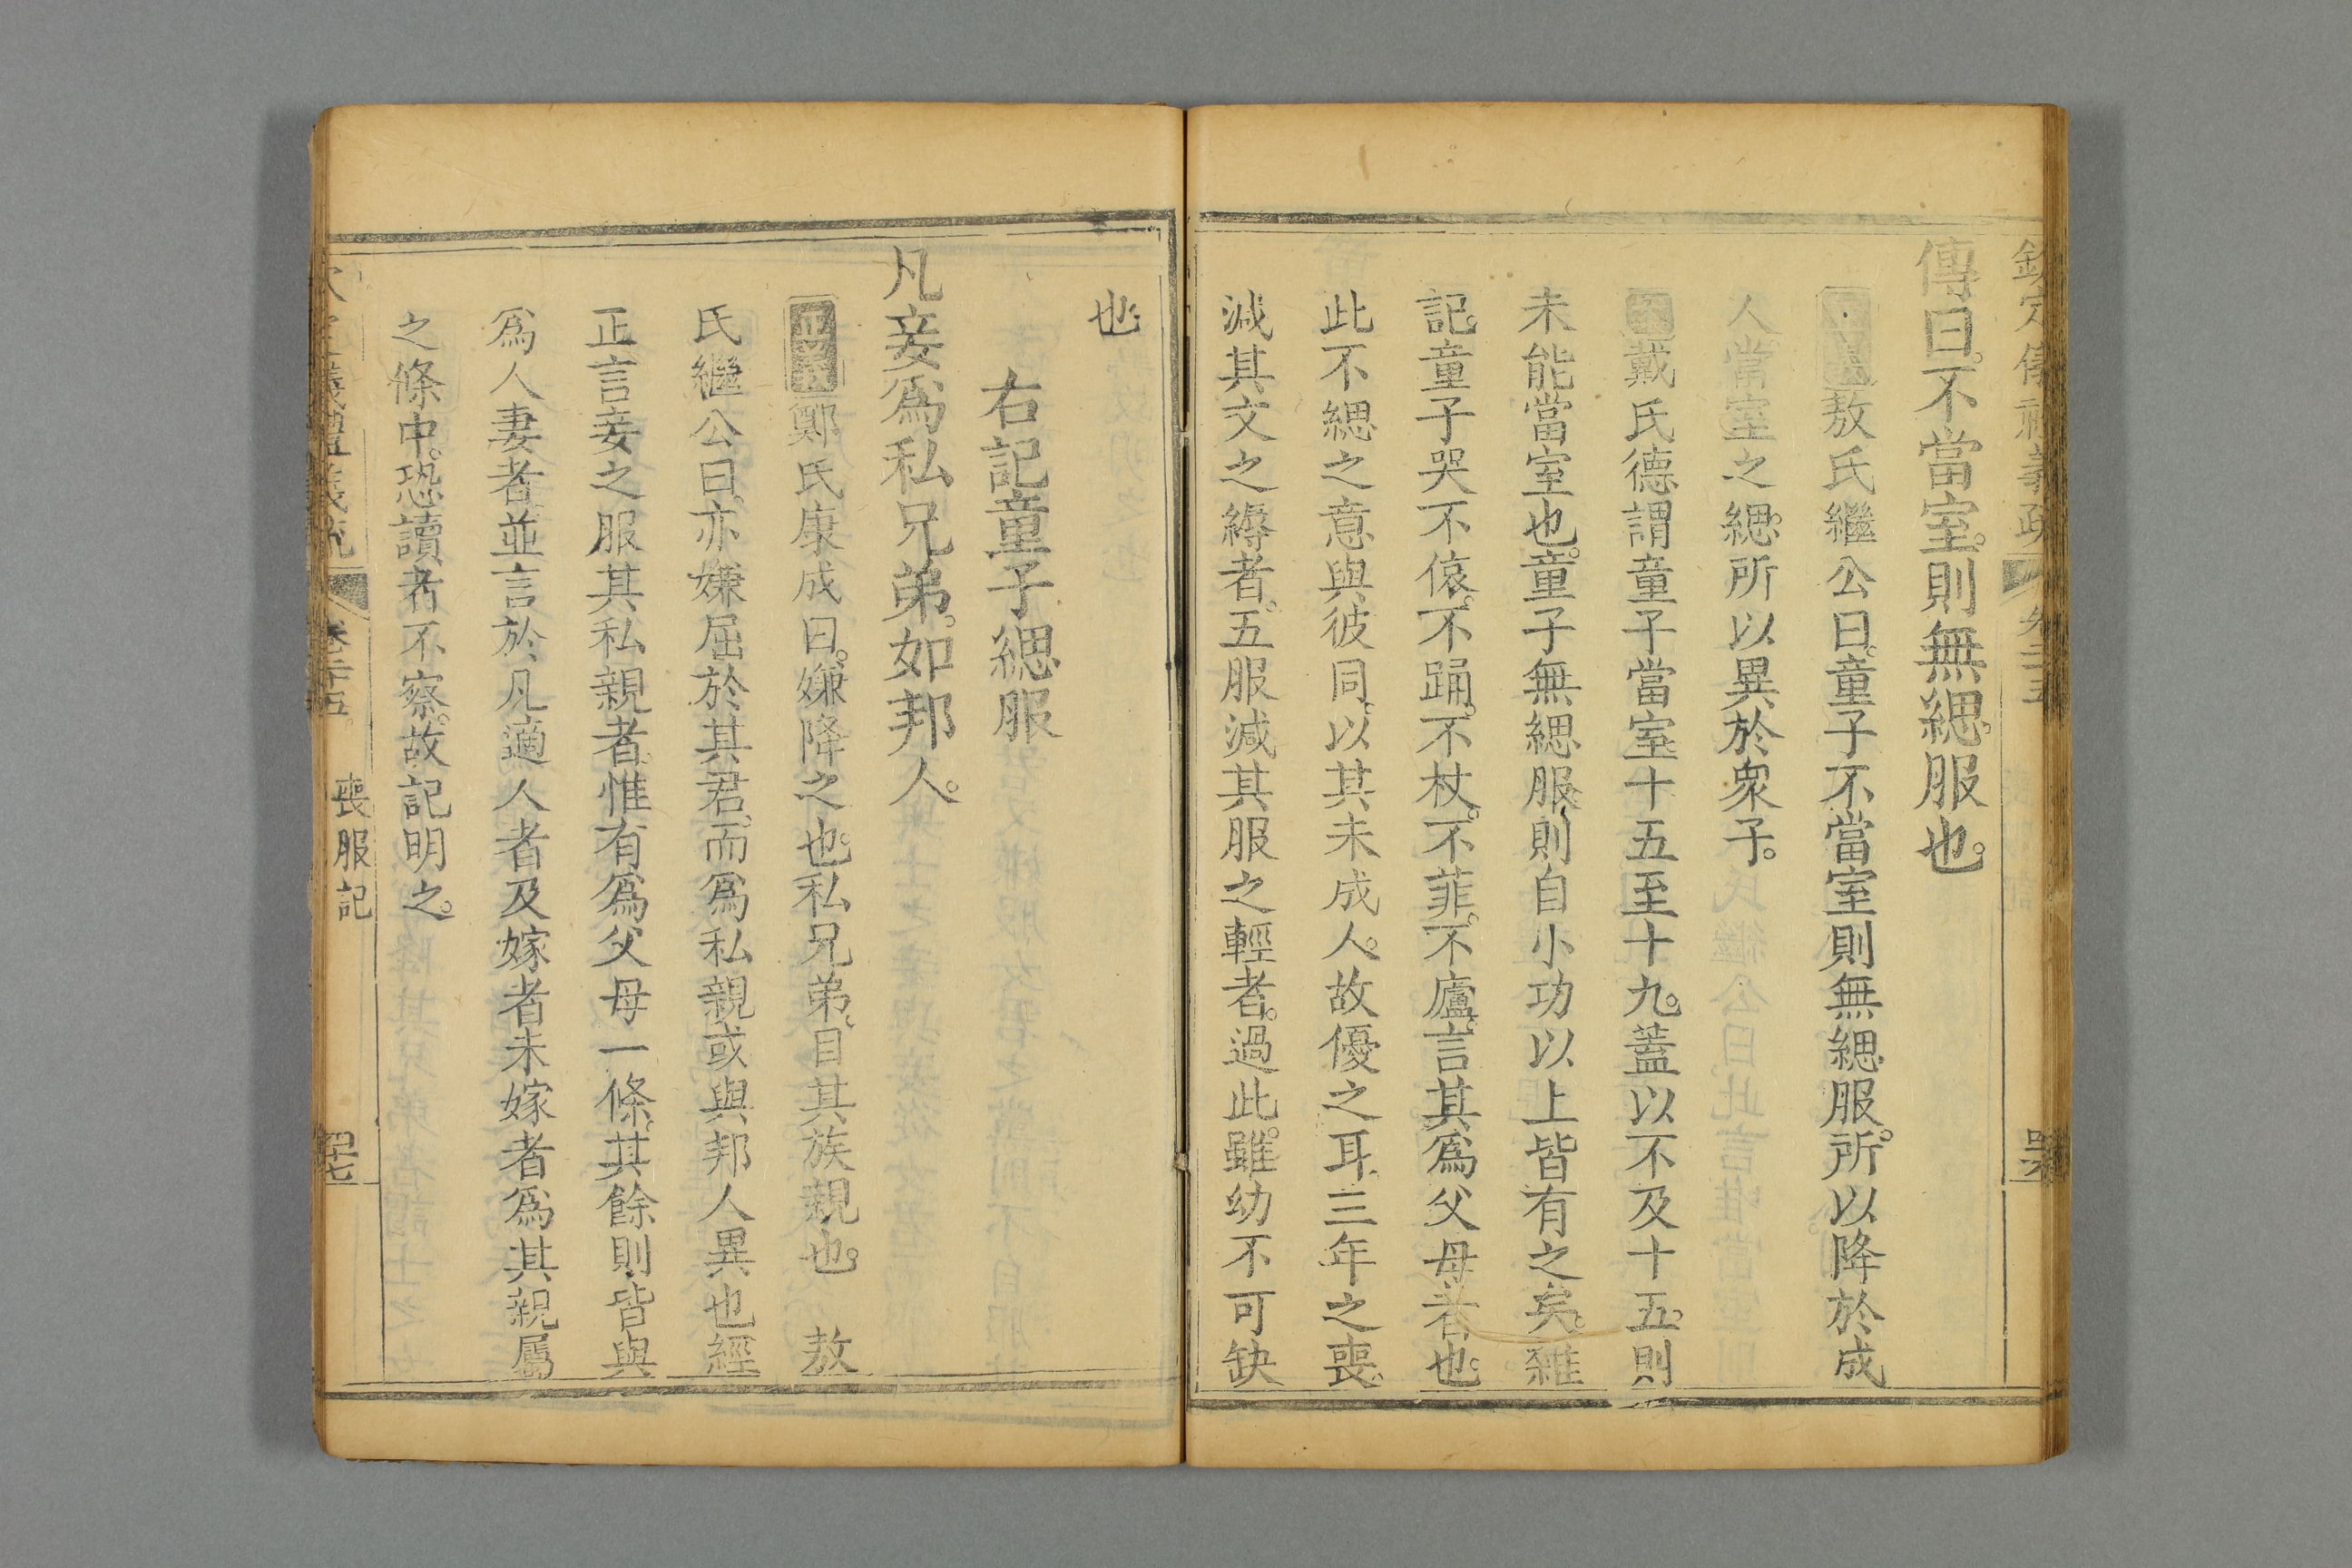 欽定儀禮義疏 卷二十五
傳曰。不當室。則無緦服也。
敖氏繼公曰。童子不當室則無緦服。所以降於成
人。當室之緦。所以異於衆子。
戴氏德謂童子當室。十五至十九。蓋以不及十五。則
未能當室也。童子無緦服。則自小功以上皆有之矣。雜
記。童子哭不偯。不踊。不杖。不菲。不廬。言其爲父母者也。
此不緦之意與彼同。以其未成人。故優之耳。三年之喪。
減其文之縟者。五服減其服之輕者。過此。雖幼不可缺
也。
右記童子緦服
凡妾爲私兄弟。如邦人。
正義鄭氏康成曰。嫌降之也。私兄弟。目其族親也。 敖
氏繼公曰。亦嫌屈於其君。而爲私親或與邦人異也。經
正言妾之服其私親者。惟有爲父母一條。其餘則皆與
爲人妻者並言於凡適人者及嫁者未嫁者爲其親屬
之條中。恐讀者不察。故記明之。
欽定儀禮義疏 卷二十五 喪服記 四十七